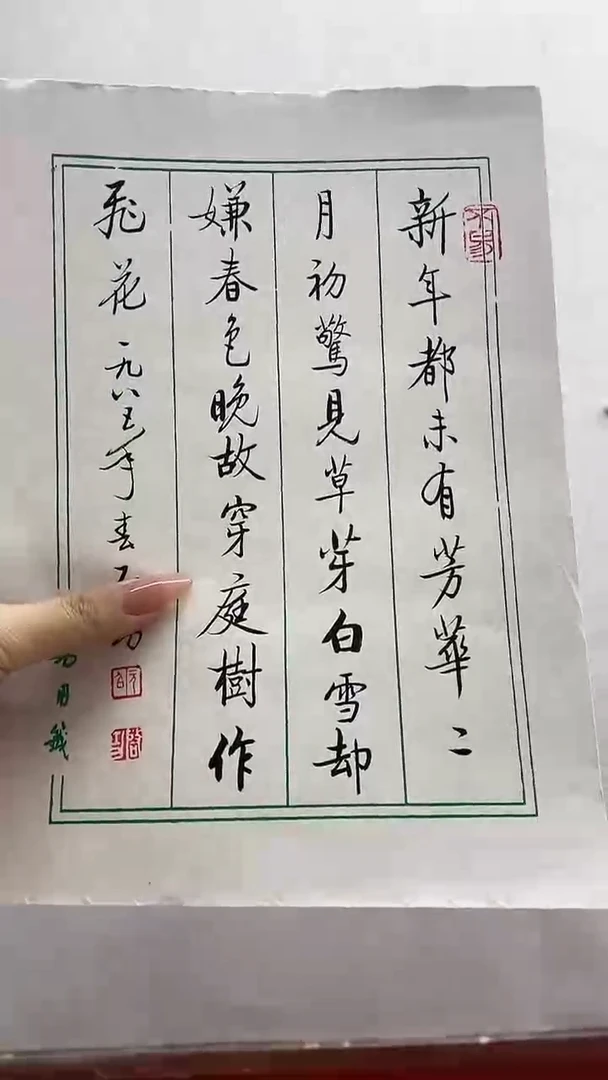 新年都未有芳華二
月初驚見草芽白雪却
嫌春色晚故穿庭樹作
飛花 一九八五年春
用箋